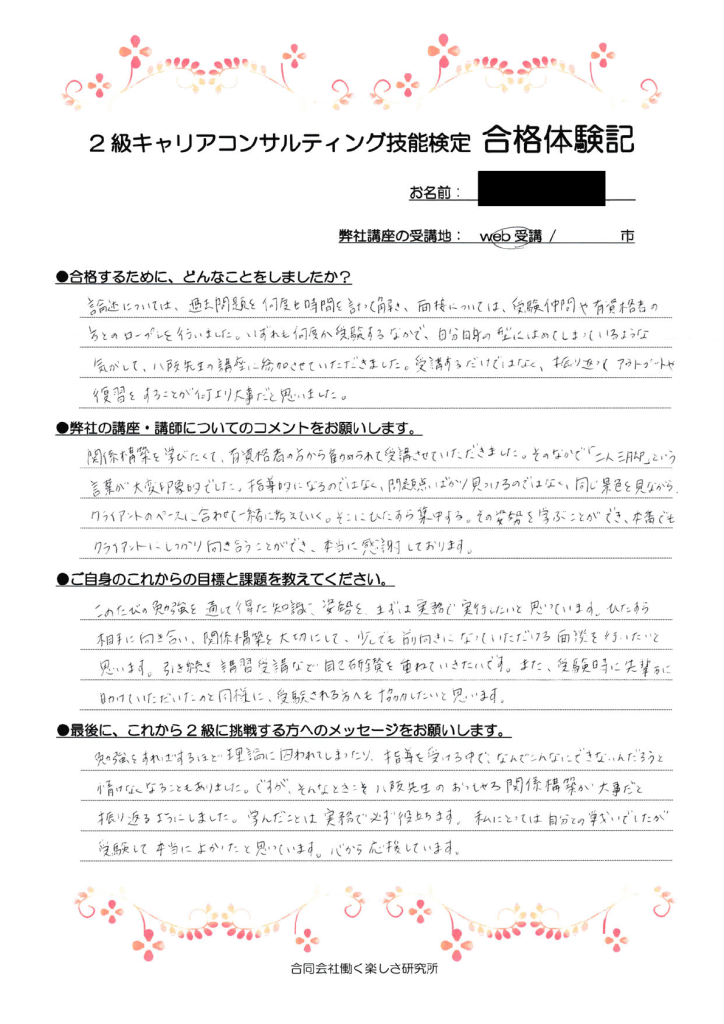 2級キャリアコンサルティング技能検定 合格体験記
お名前：
弊社講座の受講地： web受講 / 市
●合格するために、どんなことをしましたか？
論述については、過去問題を何度も時間を計って解き、面接については、受験仲間や有資格者の
方とのロープレを行いました。いずれも何度か受験するなかで、自分自身の型にはめてしまっているような
気がして、八阪先生の講座に参加させていただきました。受講するだけではなく、振り返って アウトプットや
復習をすることが何より大事だと思いました。
●弊社の講座・講師についてのコメントをお願いします。
関係構築を学びたくて、有資格者の方から薦められて受講させていただきました。そのなかで「二人三脚」という
言葉が大変印象的でした。指導的になるのではなく、問題点ばかり見つけるのではなく、同じ景色を見ながら、
クライアントのペースに合わせて一緒に考えていく。そこにひたすら集中する。その姿勢を学ぶことができ、本番でも
クライアントにしっかり向き合うことができ、本当に感謝しております。
●ご自身のこれからの目標と課題を教えてください。
このたびの勉強を通して得た知識、姿勢を、まずは実務で実行したいと思っています。ひたすら
相手に向き合い、関係構築を大切にして、少しでも前向きになっていただける面談を行いたいと
思います。引き続き講習受講など自己研鑽を重ねていきたいです。また、受験時に先輩方に
助けていただいたのと同様に、受験される方へも協力したいと思います。
●最後に、これから2級に挑戦する方へのメッセージをお願いします。
勉強をすればするほど理論に囚われてしまったり、指導を受ける中で、なんでこんなにできないんだろうと
情けなくなることもありました。ですが、そんなときこそ八阪先生のおっしゃる関係構築が大事だと
振り返るようにしました。学んだことは実務で必ず役立ちます。私にとっては自分との戦いでしたが
受験して本当によかったと思っています。心から応援しています。
合同会社働く楽しさ研究所